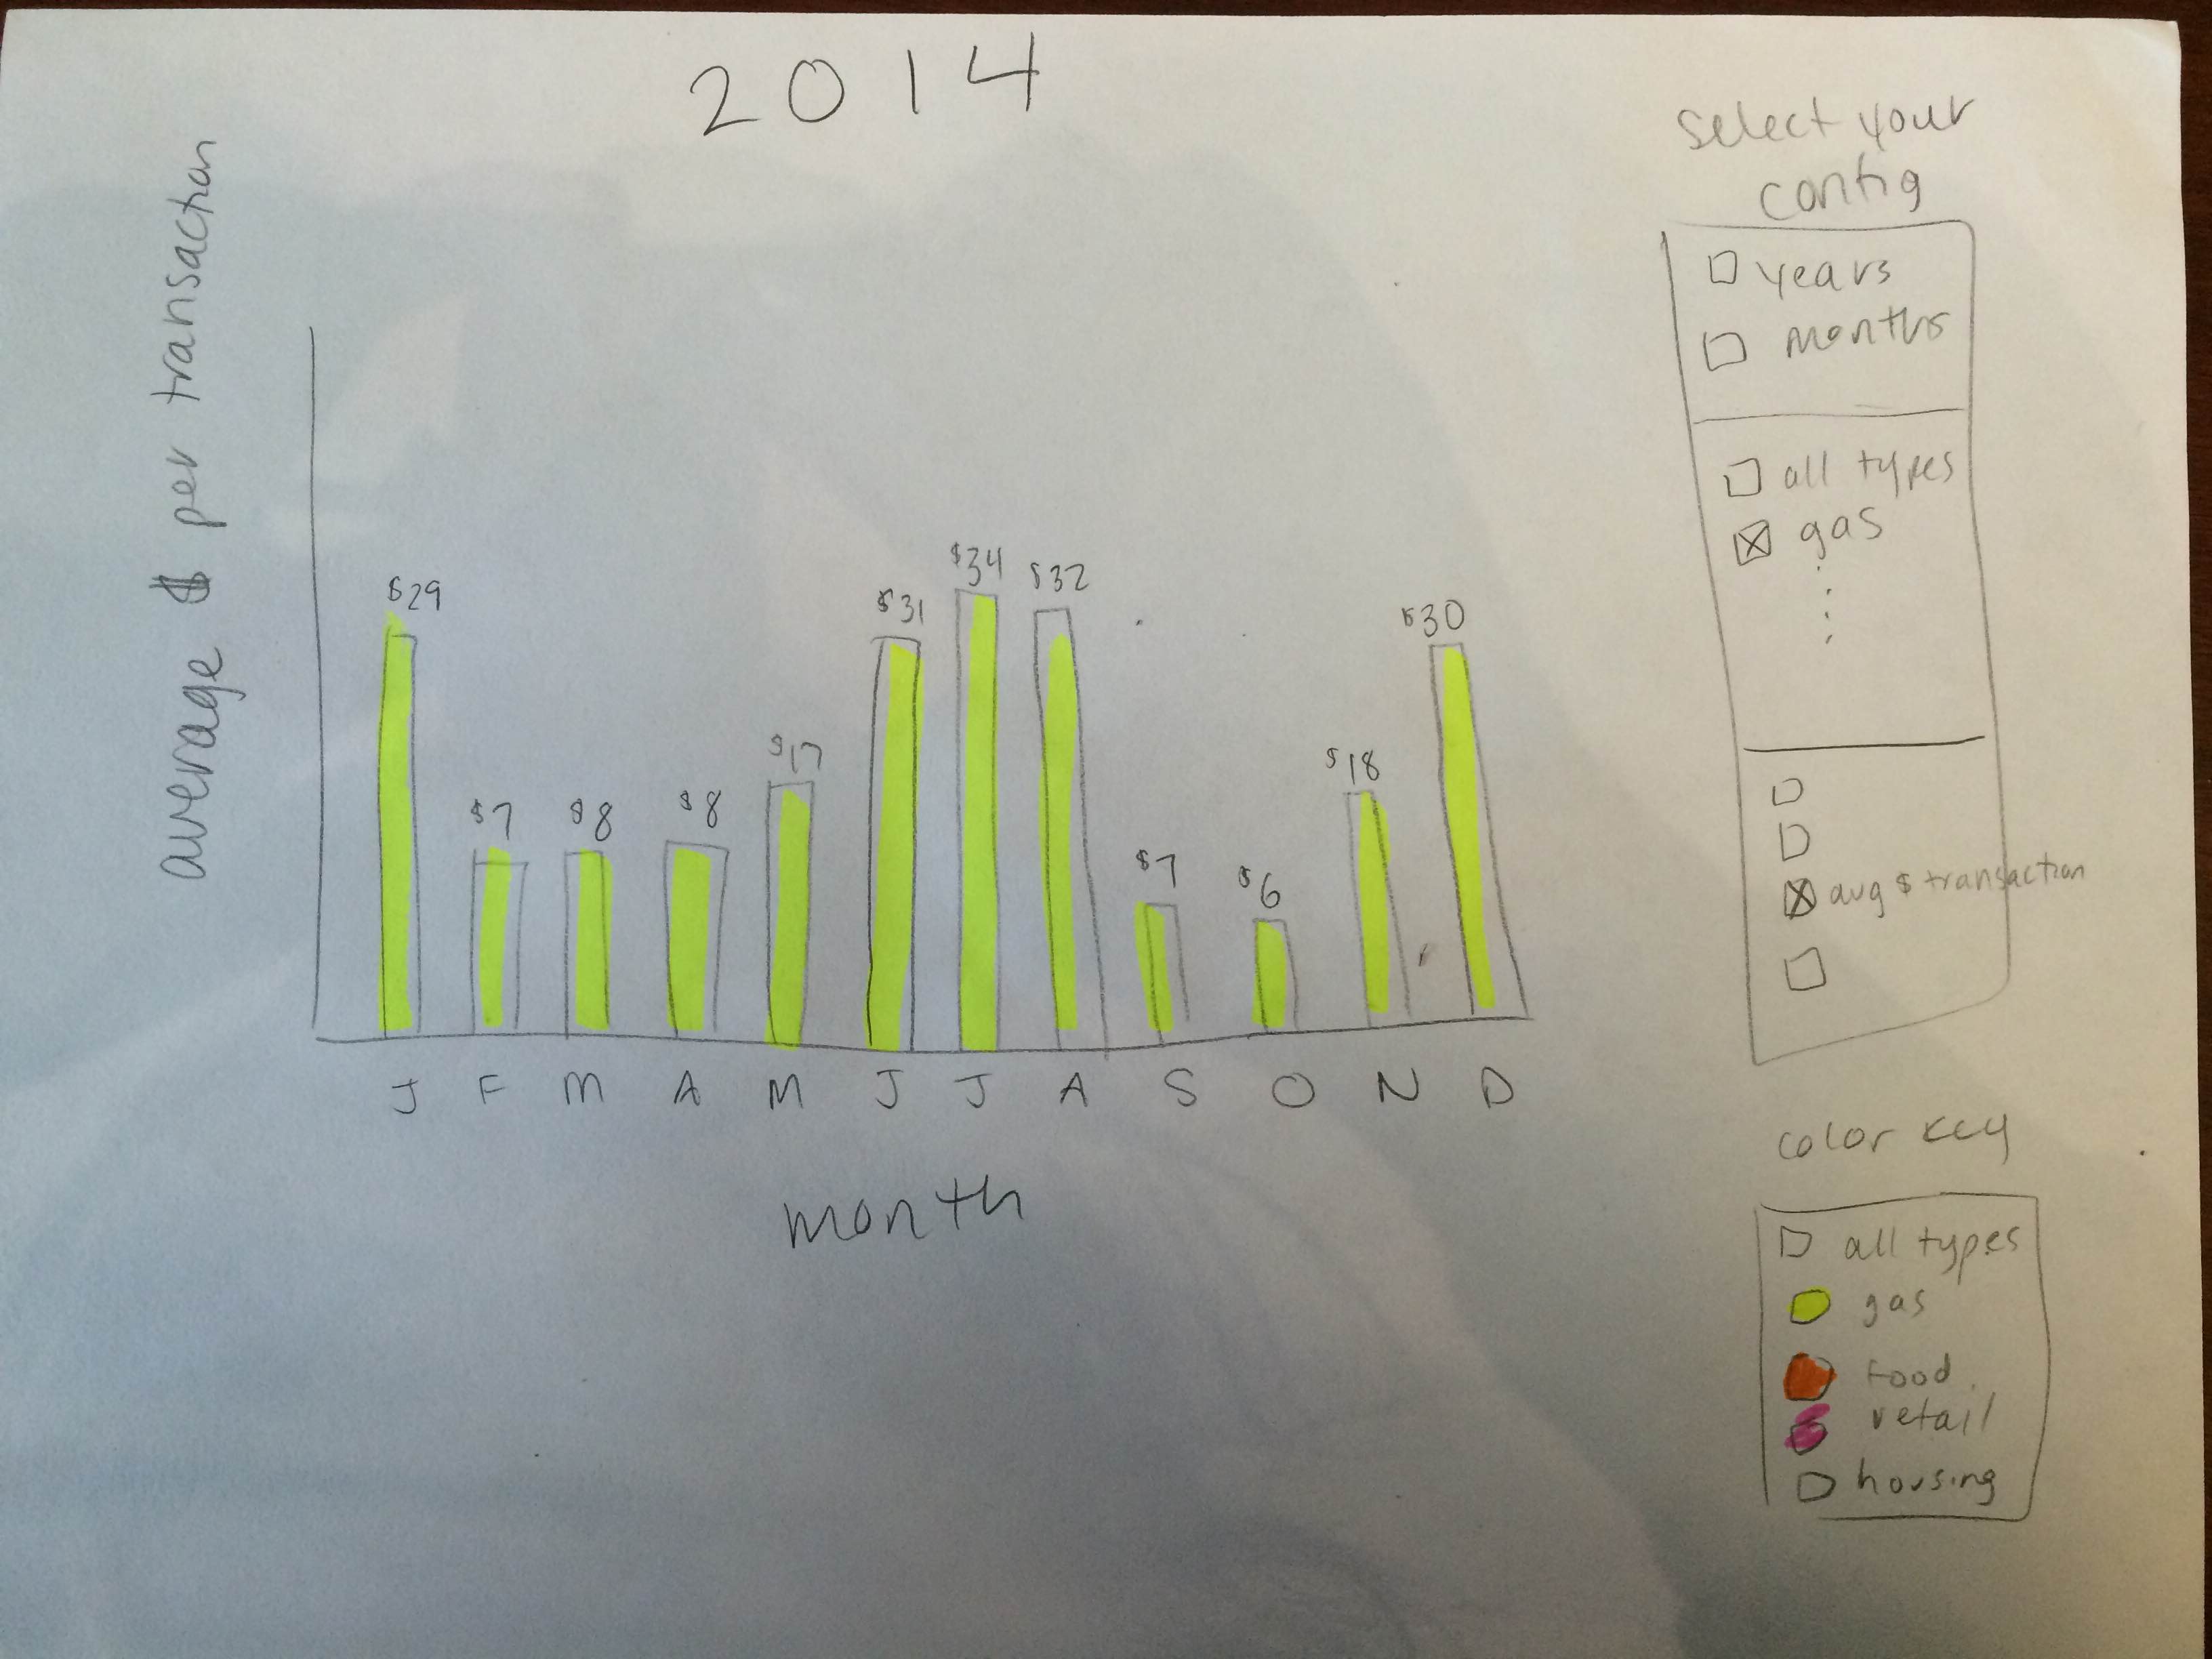 2014
average $ per transaction
$29
$7
$8
$8
$17
$31
$34
$32
$7
$6
$18
$30
J F M A M J J A S O N D
month
select your
config
years
months
all types
gas
avg $ transaction
color key
all types
gas
food
retail
housing